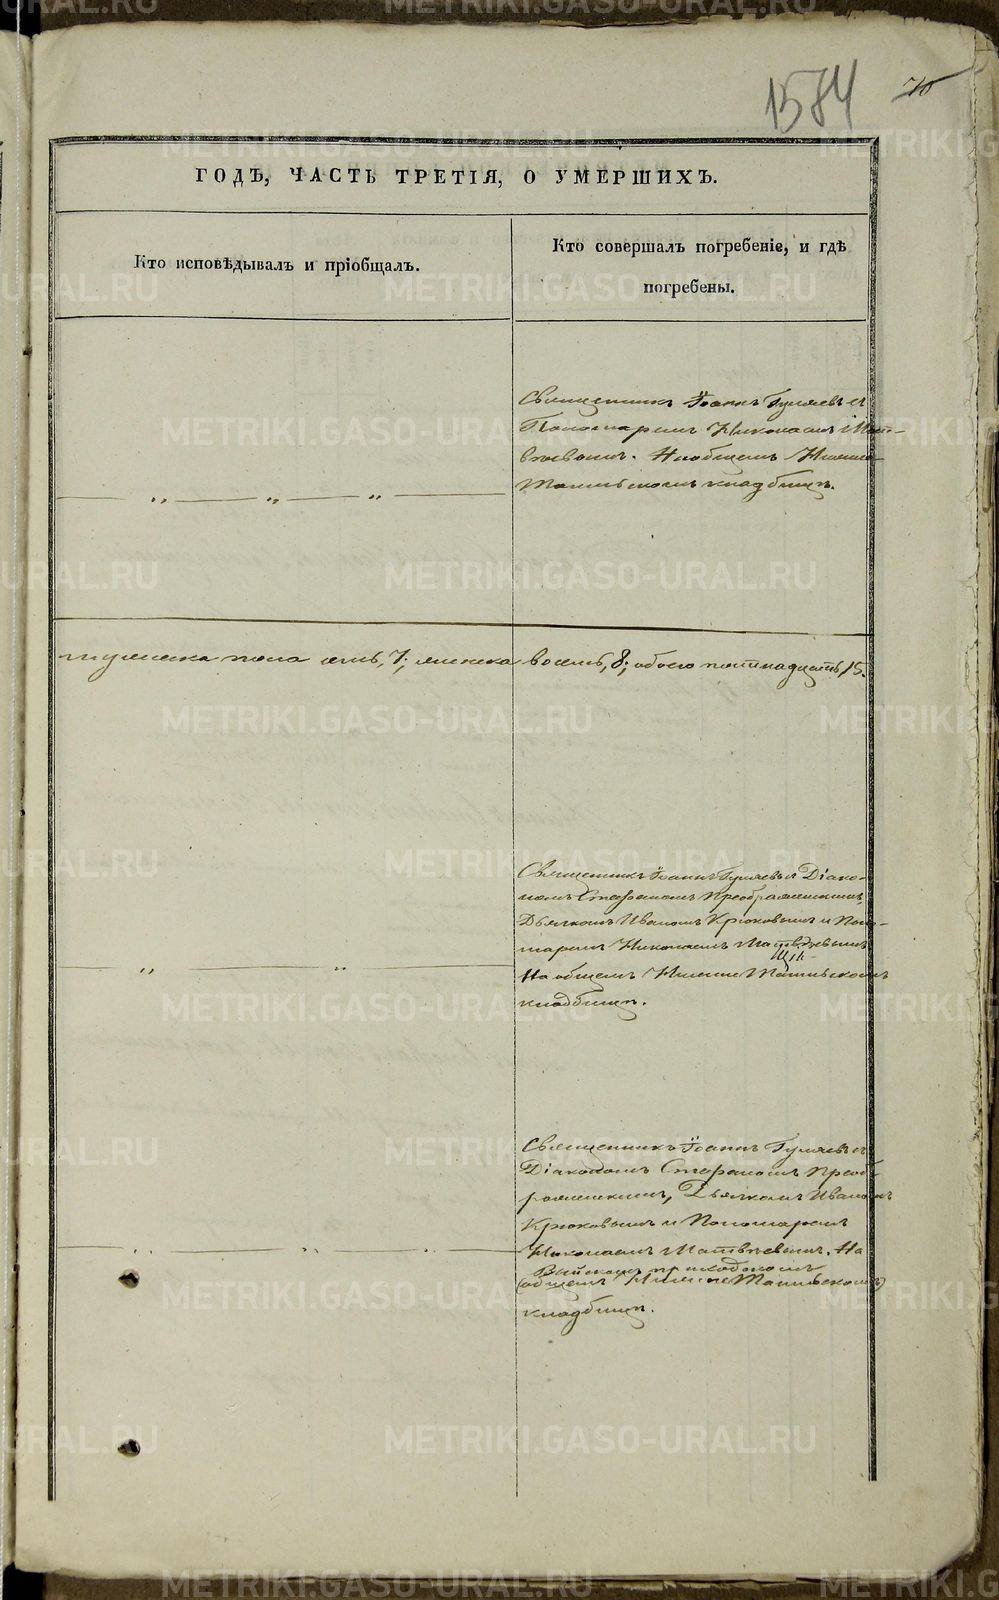 1584
70
ГОДѢ, ЧАСТЬ ТРЕТІЯ, О УМЕРШИХЪ.
Кто исповѣдывалъ и пріобщалъ.
Кто совершалъ погребеніе, и гдѣ
погребены.
Священникъ Іоаннъ Гуляевъ съ
Пономаремъ Николаемъ Мат-
вѣевымъ. На общемъ Нижне-
Тагильскомъ кладбищѣ.
„ „ „
мужеска пола семь, 7; женска восемь, 8; обоего пятнадцать 15.
Священникъ Іоаннъ Гуляевъ съ Діако-
номъ Стефаномъ Преображенскимъ,
Дьячкомъ Иваномъ Крюковымъ и Поно-
маремъ Николаемъ Матвѣевымъ
На общемъ Нижне Тагильскомъ
кладбищѣ.
„ „
Священникъ Іоаннъ Гуляевъ съ
Діакономъ Стефаномъ Преоб-
раженскимъ, Дьячкомъ Иваномъ
Крюковымъ и Пономаремъ
Николаемъ Матвѣевымъ. На
Выйскомъ приходскомъ
(общемъ Нижне Тагильскомъ)
кладбищѣ.
„ „
METRIKI.GASO-URAL.RU